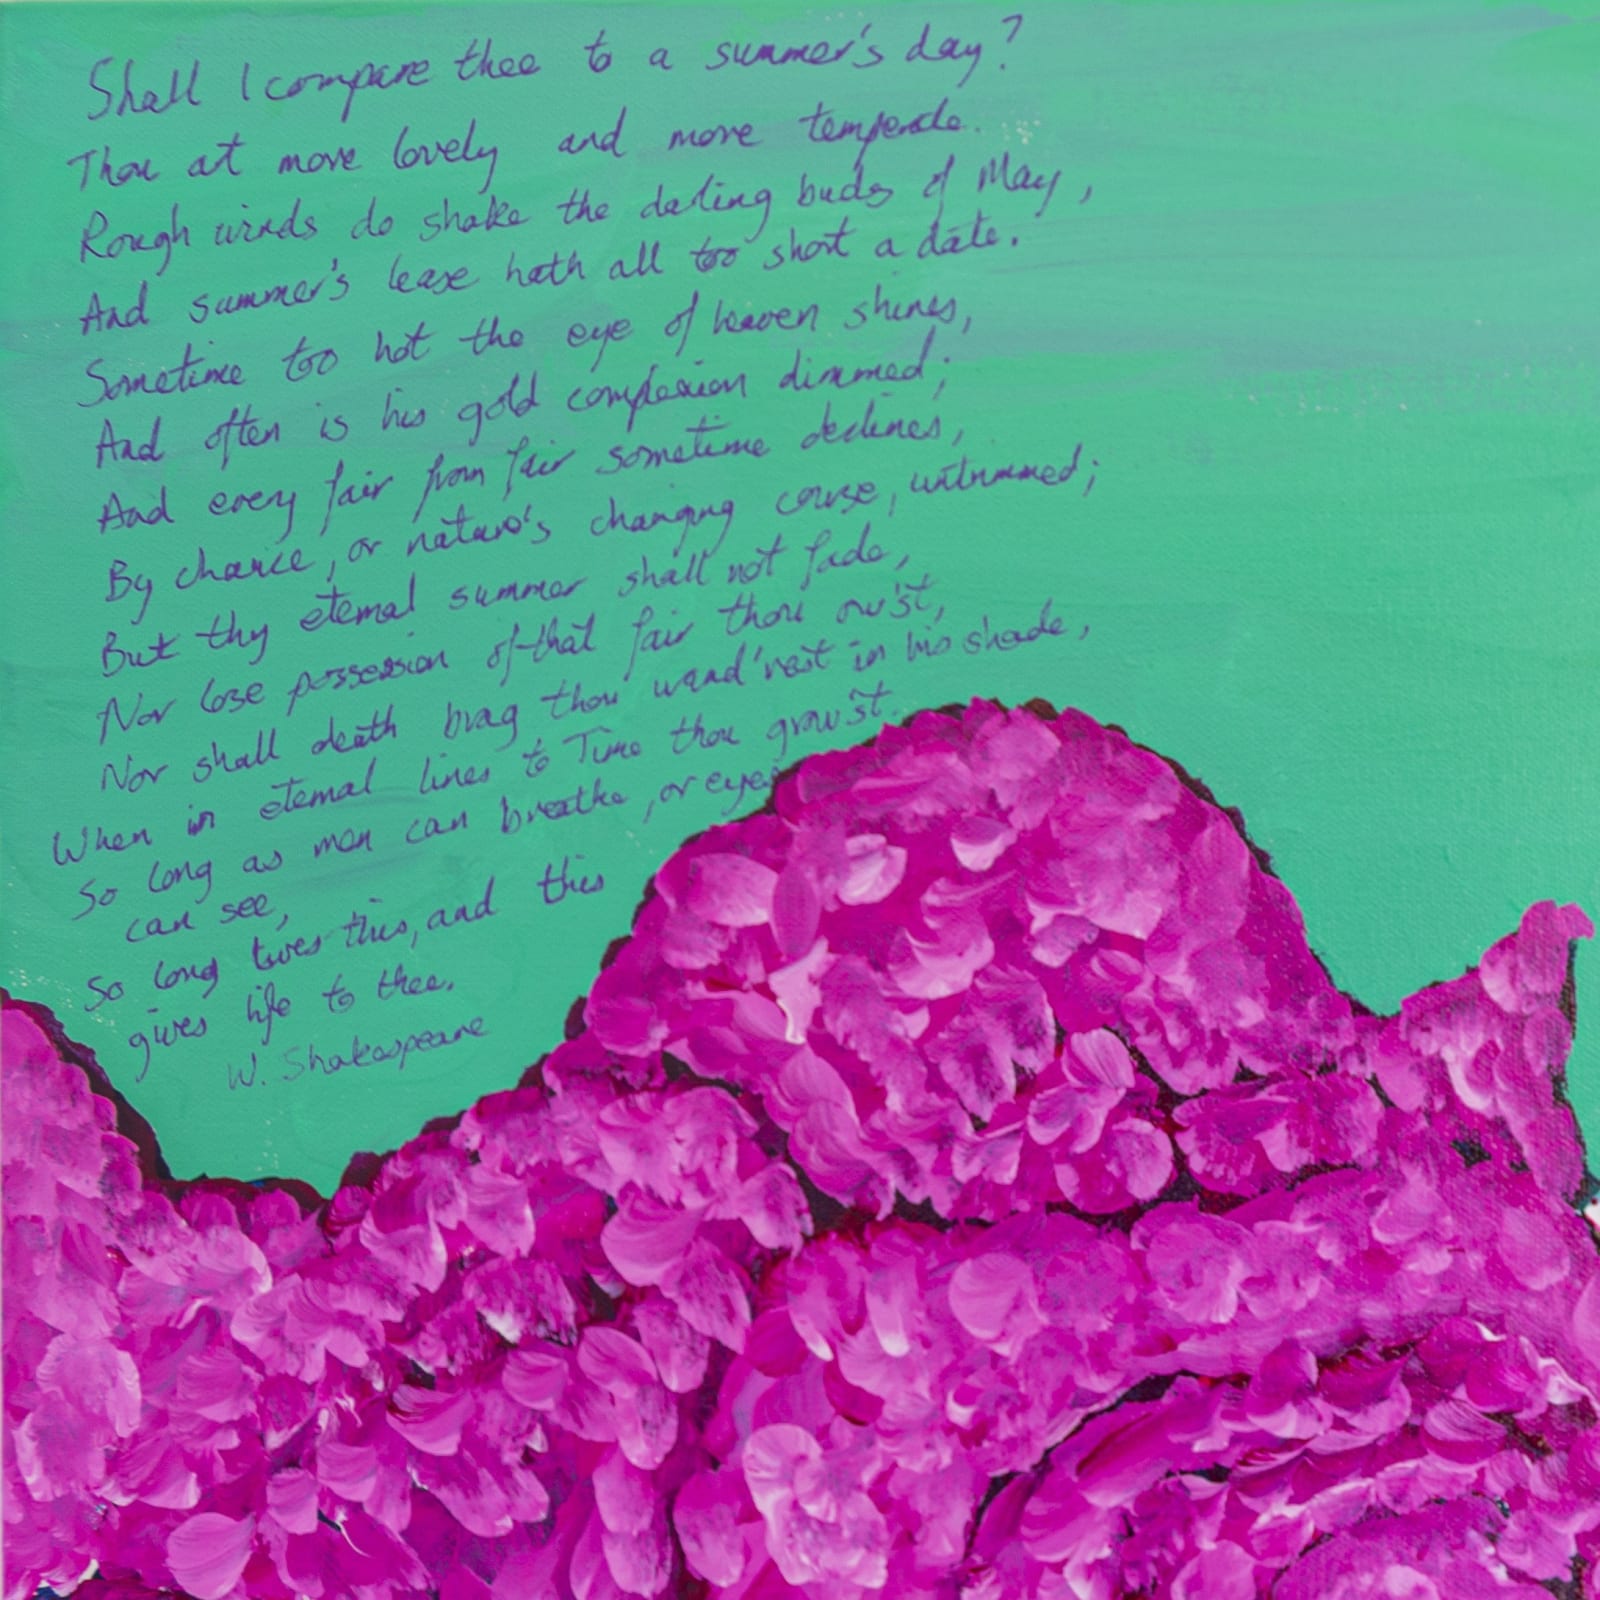 Shall I compare thee to a summer's day?
Thou art more lovely and more temperate.
Rough winds do shake the darling buds of May,
And summer's lease hath all too short a date.
Sometime too hot the eye of heaven shines,
And often is his gold complexion dimmed;
And every fair from fair sometime declines,
By chance, or nature's changing course, untrimmed;
But thy eternal summer shall not fade,
Nor lose possession of that fair thou ow'st,
Nor shall death brag thou wand'rest in his shade,
When in eternal lines to Time thou grow'st.
So long as men can breathe, or eyes
can see,
So long lives this, and this
gives life to thee.
W. Shakespeare